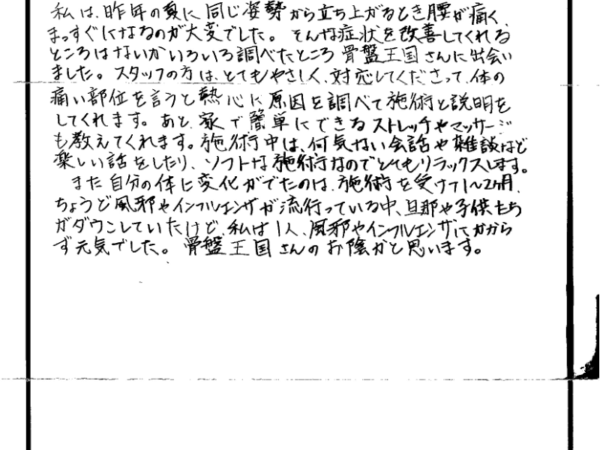 私は、昨年の夏に同じ姿勢から立ち上がるとき腰が痛く、
まっすぐになるのが大変でした。そんな症状を改善してくれる
ところはないかいろいろ調べたところ骨盤王国さんに出会い
ました。スタッフの方は、とてもやさしく、対応してくださって、体の
痛い部位を言うと熱心に原因を調べて施術と説明を
してくれます。あと、家で簡単にできるストレッチやマッサージ
も教えてくれます。施術中は、何気ない会話や雑談など
楽しい話をしたり、ソフトな施術なのでとてもリラックスします。
また自分の体に変化がでたのは、施術を受けて1〜2ヶ月、
ちょうど風邪やインフルエンザが流行っている中、旦那や子供たち
がダウンしていたけど、私は1人、風邪やインフルエンザにかから
ず元気でした。骨盤王国さんのお陰かと思います。